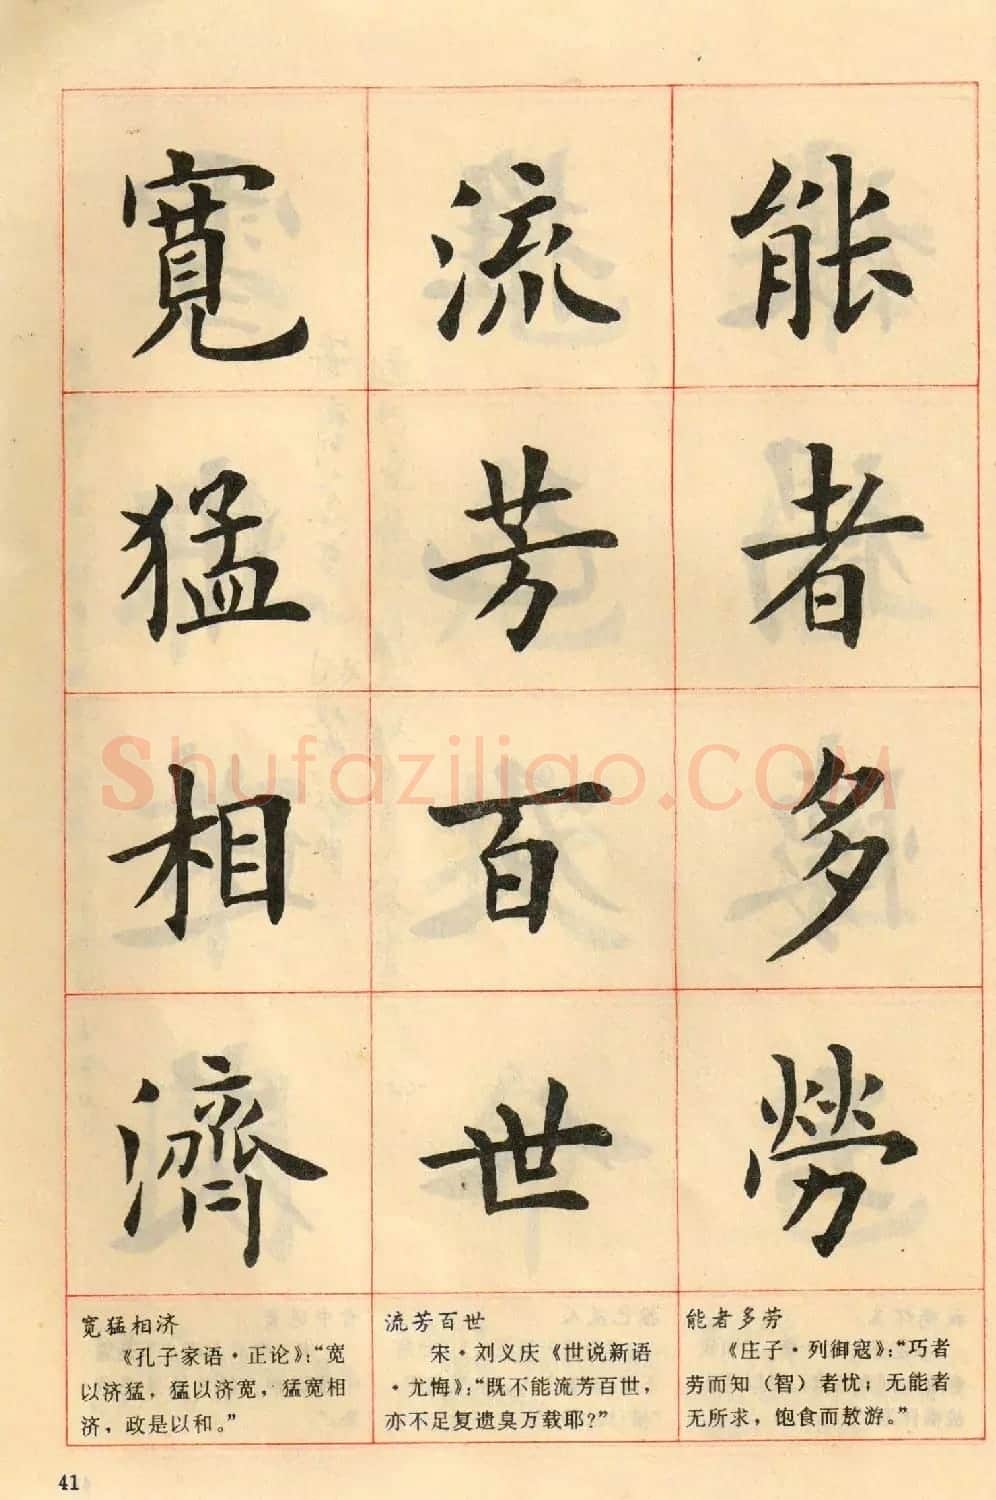 能者多勞
流芳百世
寬猛相濟
Shufaziliao.COM
宽猛相济
《孔子家语·正论》：“宽
以济猛，猛以济宽，猛宽相
济，政是以和。”
流芳百世
宋·刘义庆《世说新语
·尤悔》：“既不能流芳百世，
亦不足复遗臭万载耶？”
能者多劳
《庄子·列御寇》：“巧者
劳而知（智）者忧；无能者
无所求，饱食而敖游。”
41